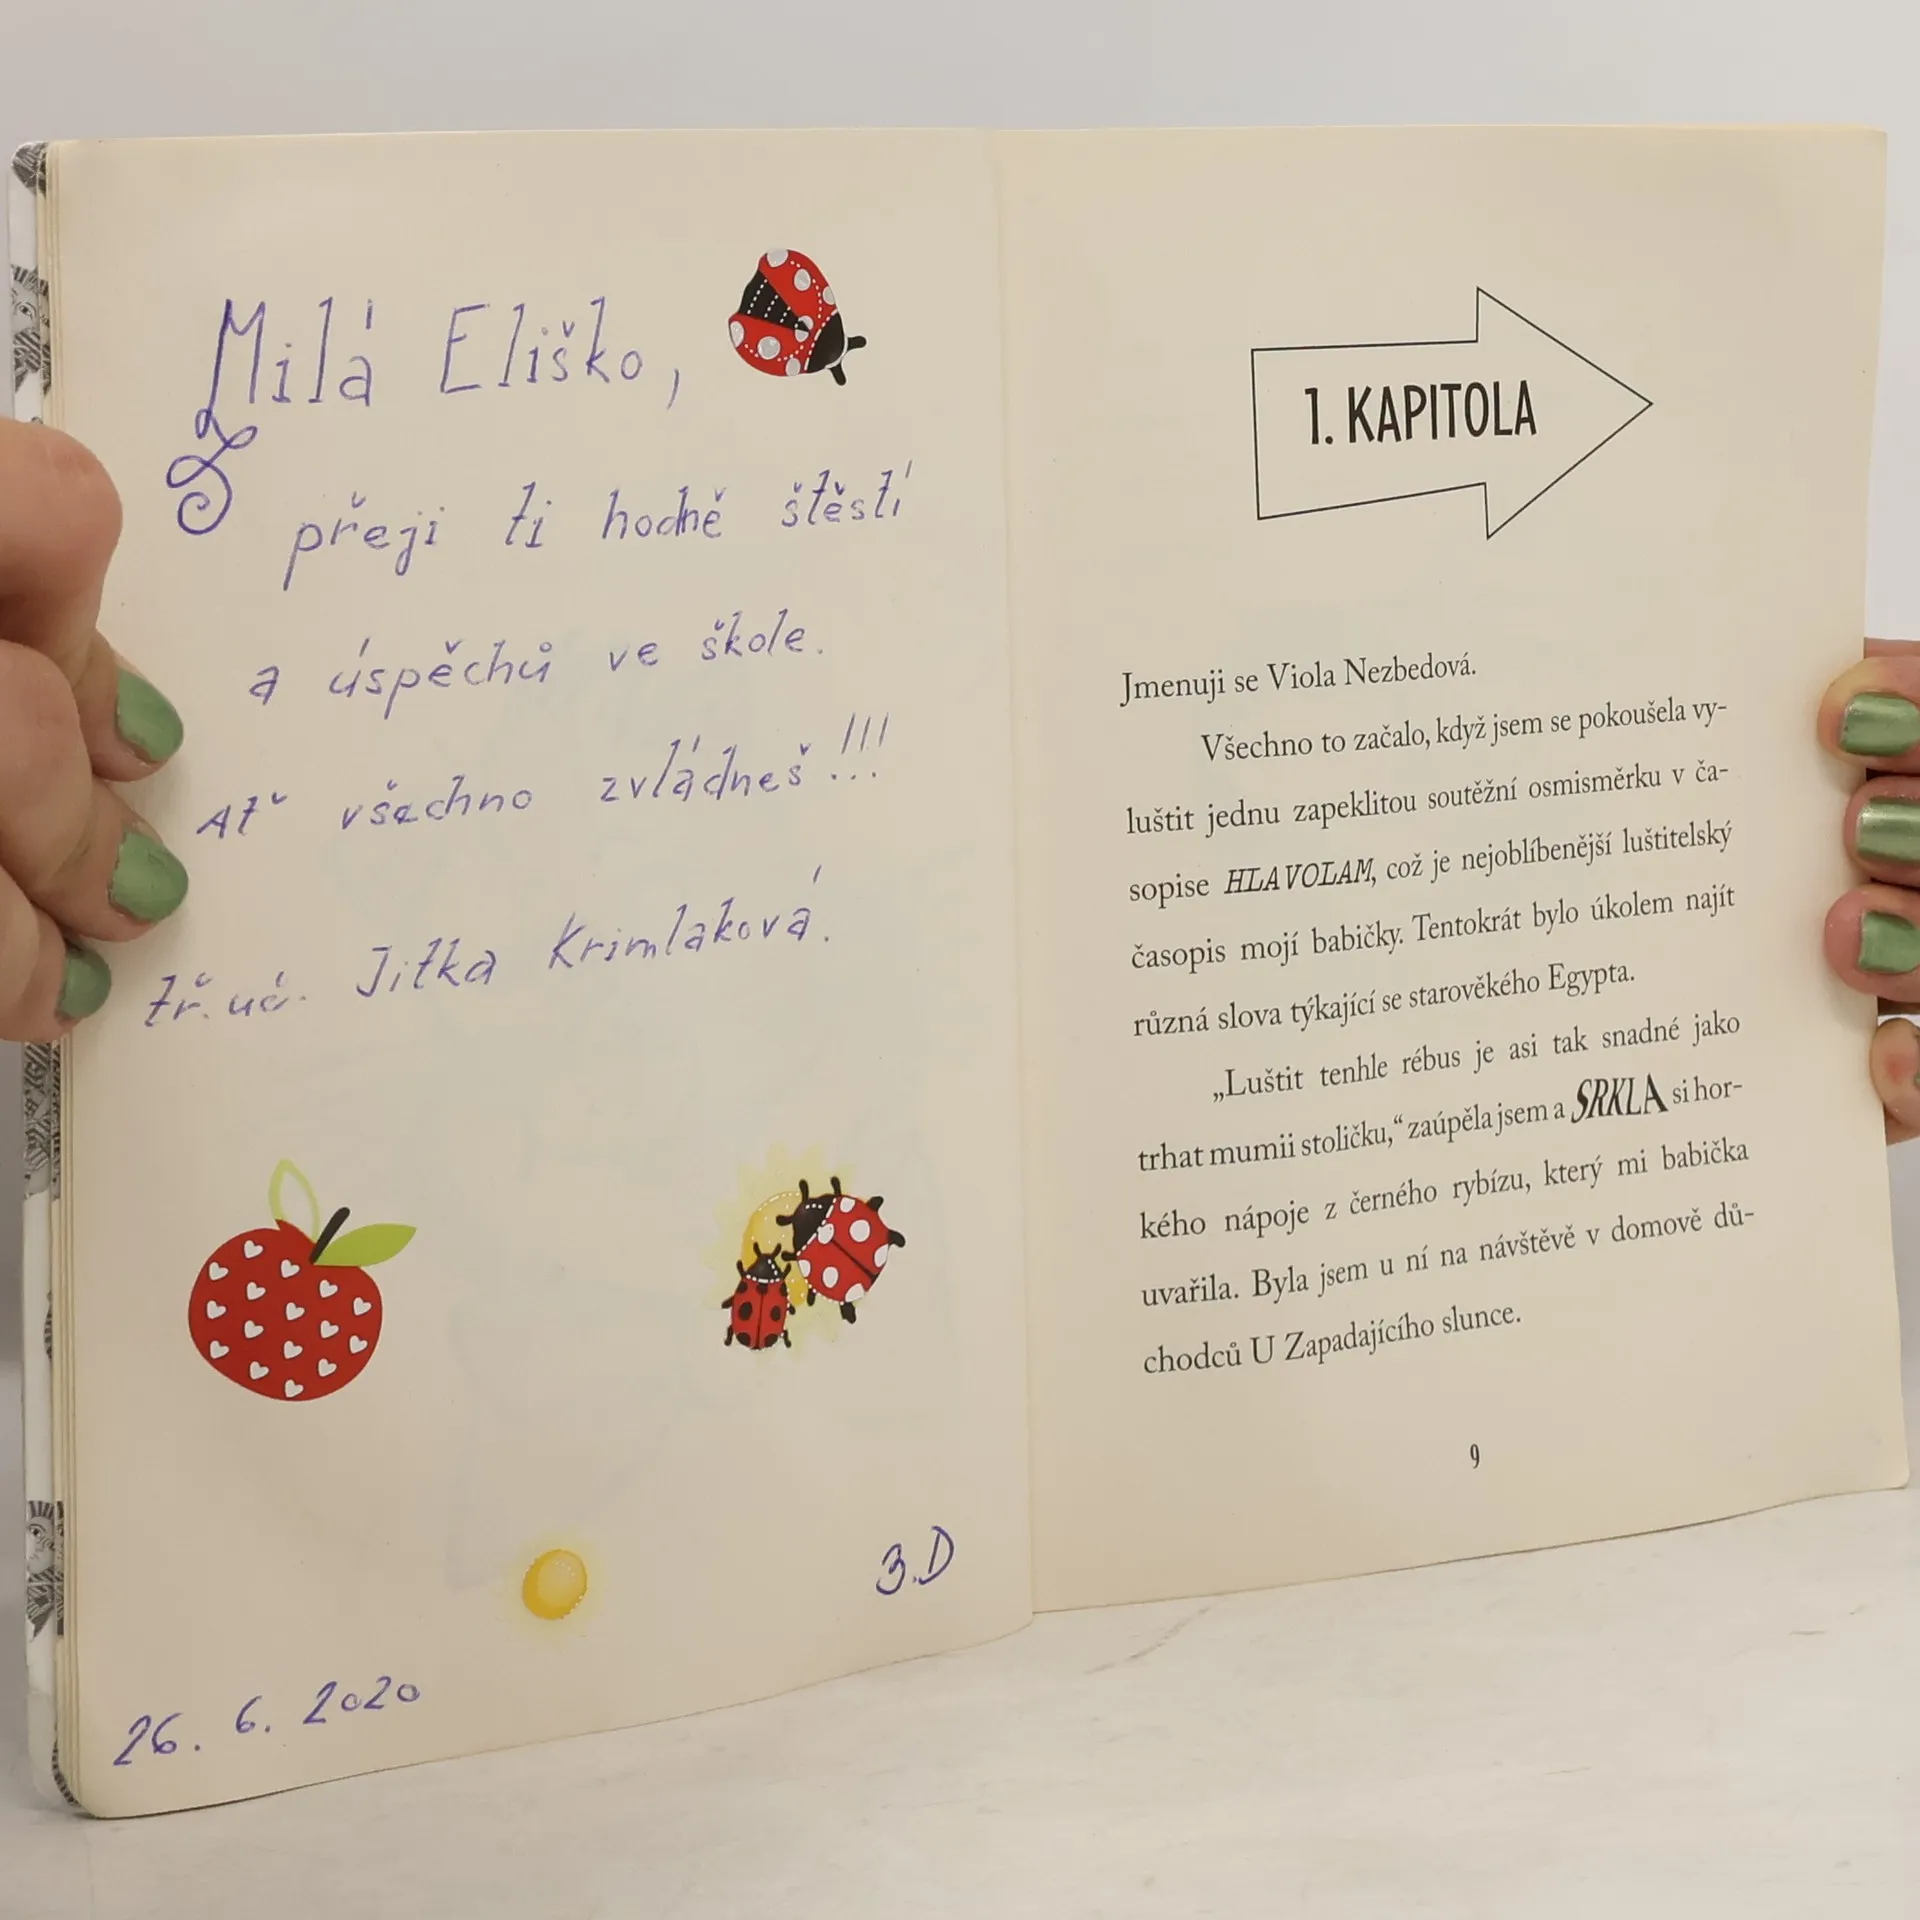 Milá Eliško,
přeji ti hodně štěstí
a úspěchů ve škole.
Ať všechno zvládneš!!!
tř. uč. Jitka Krimlaková.
3.D
26. 6. 2020
1. KAPITOLA
Jmenuji se Viola Nezbedová.
Všechno to začalo, když jsem se pokoušela vy-
luštit jednu zapeklitou soutěžní osmisměrku v ča-
sopise HLAVOLAM, což je nejoblíbenější luštitelský
časopis mojí babičky. Tentokrát bylo úkolem najít
různá slova týkající se starověkého Egypta.
„Luštit tenhle rébus je asi tak snadné jako
trhat mumii stoličku,“ zaúpěla jsem a SRKLA si hor-
kého nápoje z černého rybízu, který mi babička
uvařila. Byla jsem u ní na návštěvě v domově dů-
chodců U Zapadajícího slunce.
9